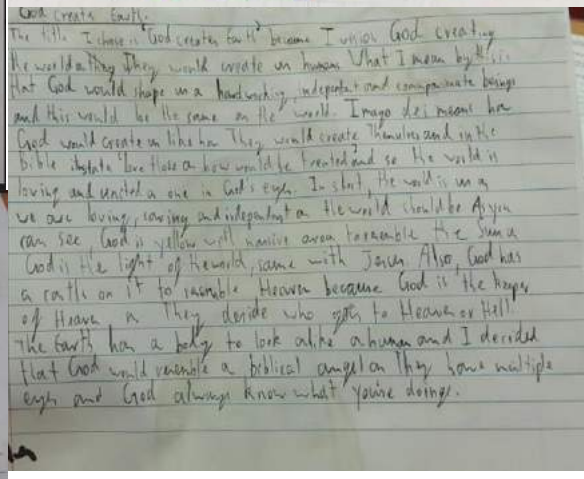 God creates Earth.
The title I chose is "God creates Earth" because I vision God creating
the world as they would create us humans. What I mean by this is
that God would shape us a hardworking, independent and compassionate beings
and this would be the same as the world. Imago dei means how
God would create us like how They would create Themselves and in the
bible it state "love those a how would be treated" and so the world is
loving and united a one in God's eyes. In short, the world is us as
we are loving, caring and independent as the world should be. As you
can see, God is yellow with massive area to resemble the Sun as
God is the light of the world, same with Jesus. Also, God has
a castle on it to resemble Heaven because God is the keeper
of Heaven as They decide who goes to Heaven or Hell.
The Earth has a body to look alike a human and I decided
that God would resemble a biblical angel as They have multiple
eyes and God always know what you're doing.